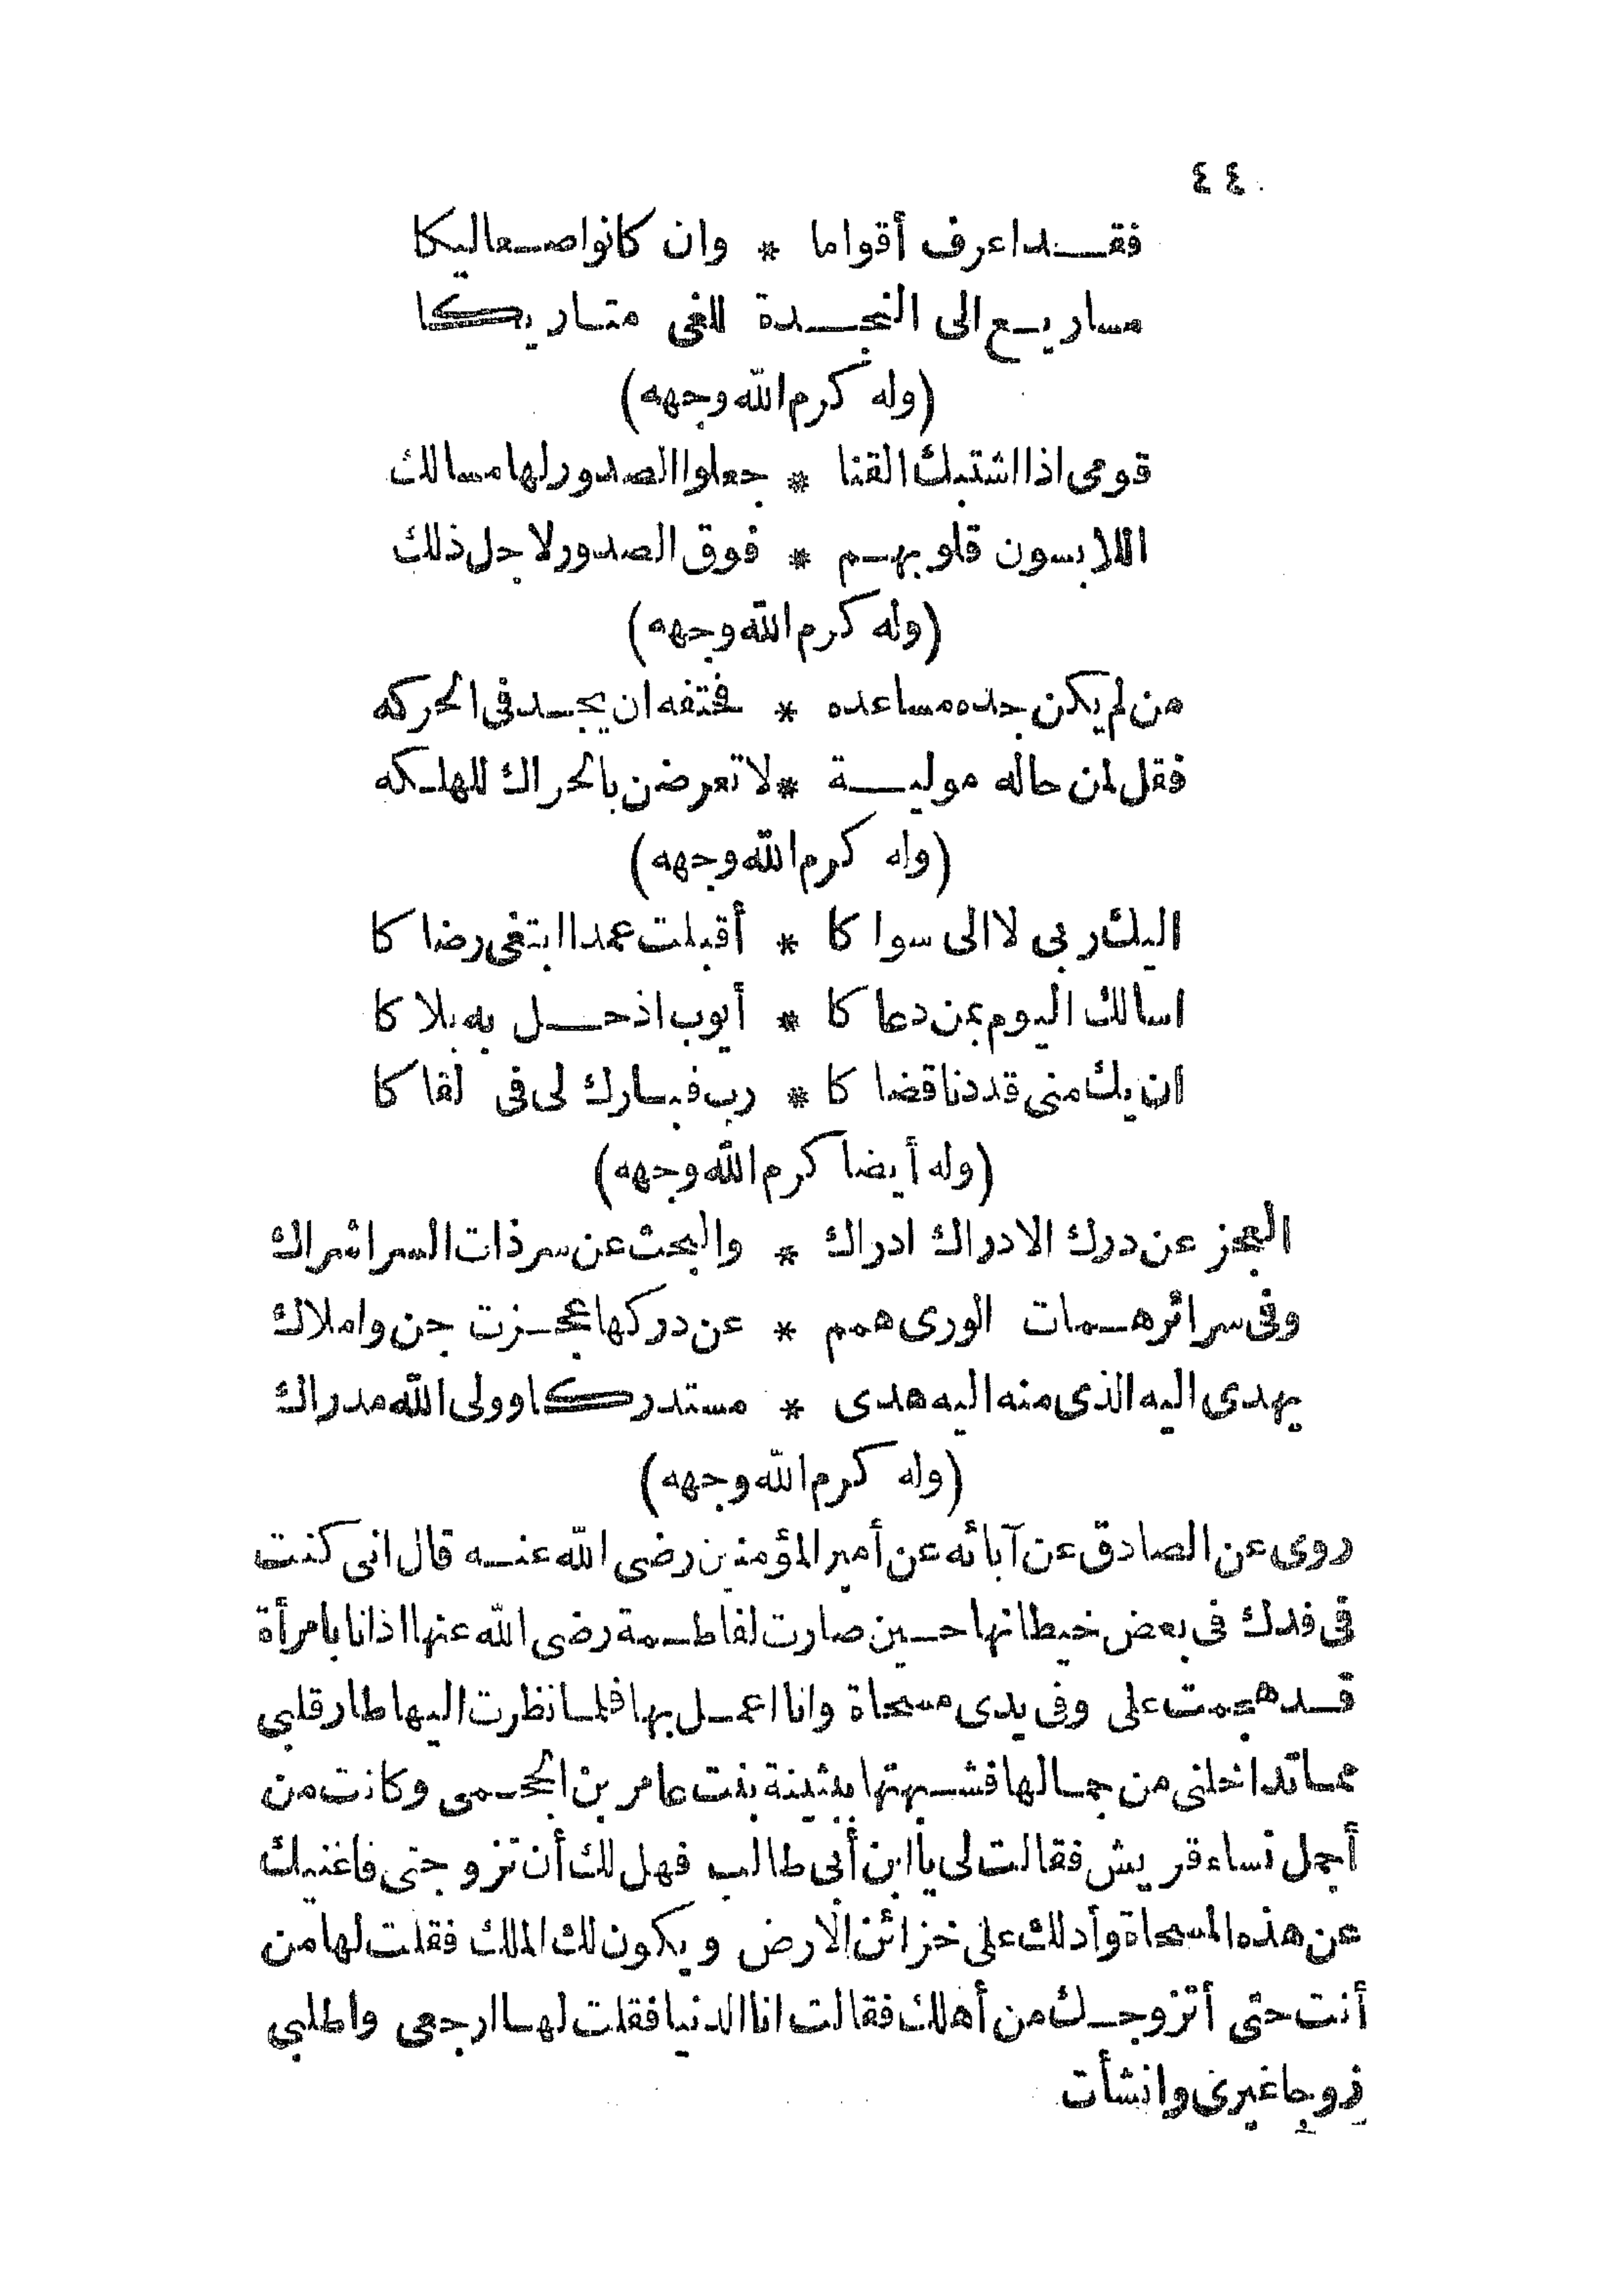 ٤٤
فقد اعرف أقواما * وان كانوا صعاليكا
مساريع الى النجدة للغى متاريكا
(وله كرم الله وجهه)
قومى اذا اشتبك القنا * جعلوا الصدور لها مسالك
اللابسون قلوبهم * فوق الصدور لاجل ذلك
(وله كرم الله وجهه)
من لم يكن جده مساعده * فحتفه ان يجد فى الحركه
فقل لمن حاله مولية * لا تعرضن بالحراك للهلكه
(وله كرم الله وجهه)
اليك ربى لا الى سواكا * أقبلت عمدا ابتغى رضاكا
اسالك اليوم بمن دعاكا * أيوب اذ حل به بلاكا
ان يك منى قد دنا قضاكا * رب فبارك لى فى لقاكا
(وله أيضا كرم الله وجهه)
العجز عن درك الادراك ادراك * والبحث عن سر ذات السر اشراك
وفى سرائر همات الورى همم * عن دركها عجزت جن واملاك
يهدى اليه الذى منه اليه هدى * مستدركا وولى الله مدراك
(وله كرم الله وجهه)
روى عن الصادق عن آبائه عن أمير المؤمنين رضى الله عنه قال انى كنت
فى فدك فى بعض حيطانها حين صارت لفاطمة رضى الله عنها اذ انا بامرأة
قد هجمت على وفى يدى مسحاة وانا اعمل بها فلما نظرت اليها طار قلبى
مما تداخلنى من جمالها فشبهتها ببثينة بنت عامر بن الجحمى وكانت من
أجمل نساء قريش فقالت لى يا ابن أبى طالب فهل لك أن تزوجنى فاغنيك
عن هذه المسحاة وأدلك على خزائن الارض ويكون لك الملك فقلت لها من
أنت حتى أتزوجك من أهلك فقالت انا الدنيا فقلت لها ارجعى واطلبى
زوجا غيرى وانشأت